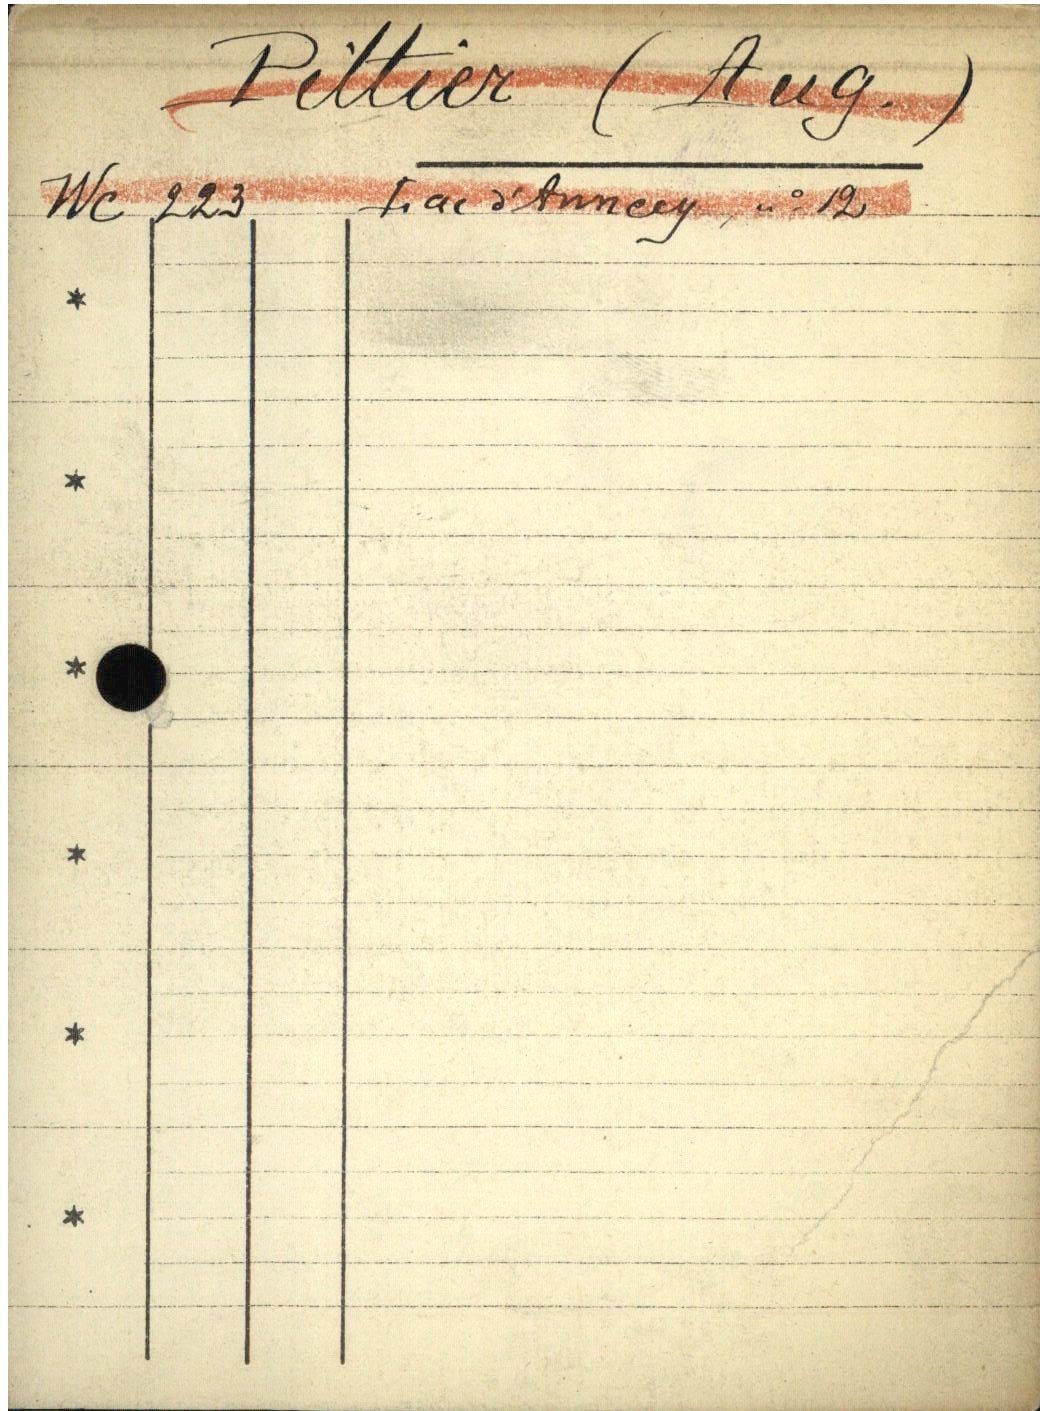 Pittier (Aug.)
Wc 223 Lac d'Annecy, n° 12